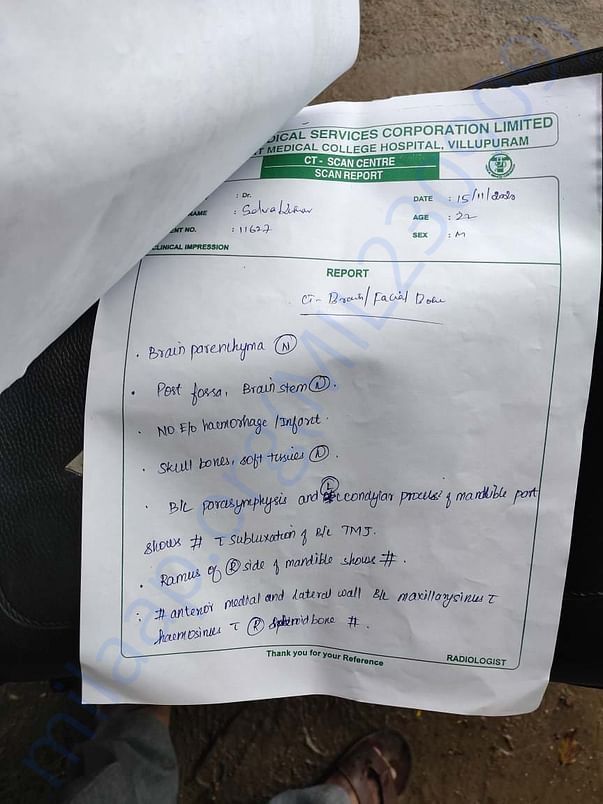 DICAL SERVICES CORPORATION LIMITED
T MEDICAL COLLEGE HOSPITAL, VILLUPURAM
CT - SCAN CENTRE
SCAN REPORT
: Dr.
DATE : 15/11/2020
NAME : Selvakumar
AGE : 22
ENT NO. : 11627
SEX : M
CLINICAL IMPRESSION
REPORT
CT - Brain / Facial Bone
. Brain parenchyma (N)
. Post fossa, Brain stem (N).
. NO E/o haemorhage / Infarct.
. Skull bones, soft tissues (N).
. B/L parasymphysis and (L) condylar process of mandible part
shows # T subluxation of B/L TMJ.
. Ramus of (R) side of mandible shows #.
. # anterior medial and lateral wall B/L maxillary sinus T
haemosinus T (R) sphenoid bone #.
Thank you for your Reference
RADIOLOGIST
milaap.org